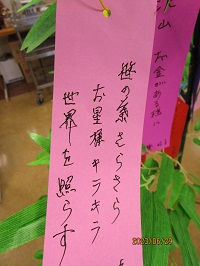 笹の葉さらさら
お星様キラキラ
世界を照らす
お金がある様に
2023/06/29